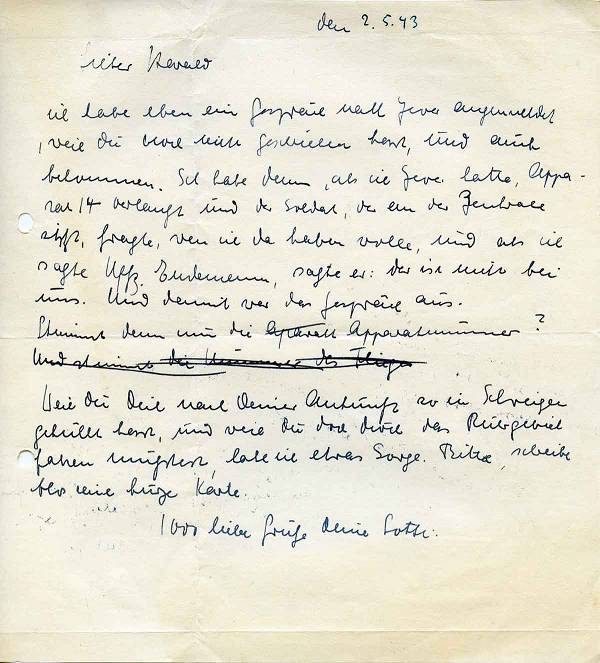 den 2.5.43
Lieber Harald
ich habe eben ein Gespräch nach Jever angemeldet
, weil du noch nicht geschrieben hast, und auch
bekommen. Ich habe dann, als ich Jever hatte, Appa-
rat 14 verlangt und der Soldat, der an der Zentrale
sitzt, fragte, wen ich da haben wolle, und als ich
sagte Uffz. Endemann, sagte er: der ist nicht bei
uns. Und damit war das Gespräch aus.
Stimmt denn nun die Apparat Apparatnummer?
Und stimmt die Nummer des Flieger
Weil du dich nach Deiner Ankunft so in Schweigen
gehüllt hast, und weil du doch durch das Ruhrgebiet
fahren mußtest, habe ich etwas Sorge. Bitte, schreibe
blos eine kurze Karte.
1000 liebe Grüße Deine Lotte.